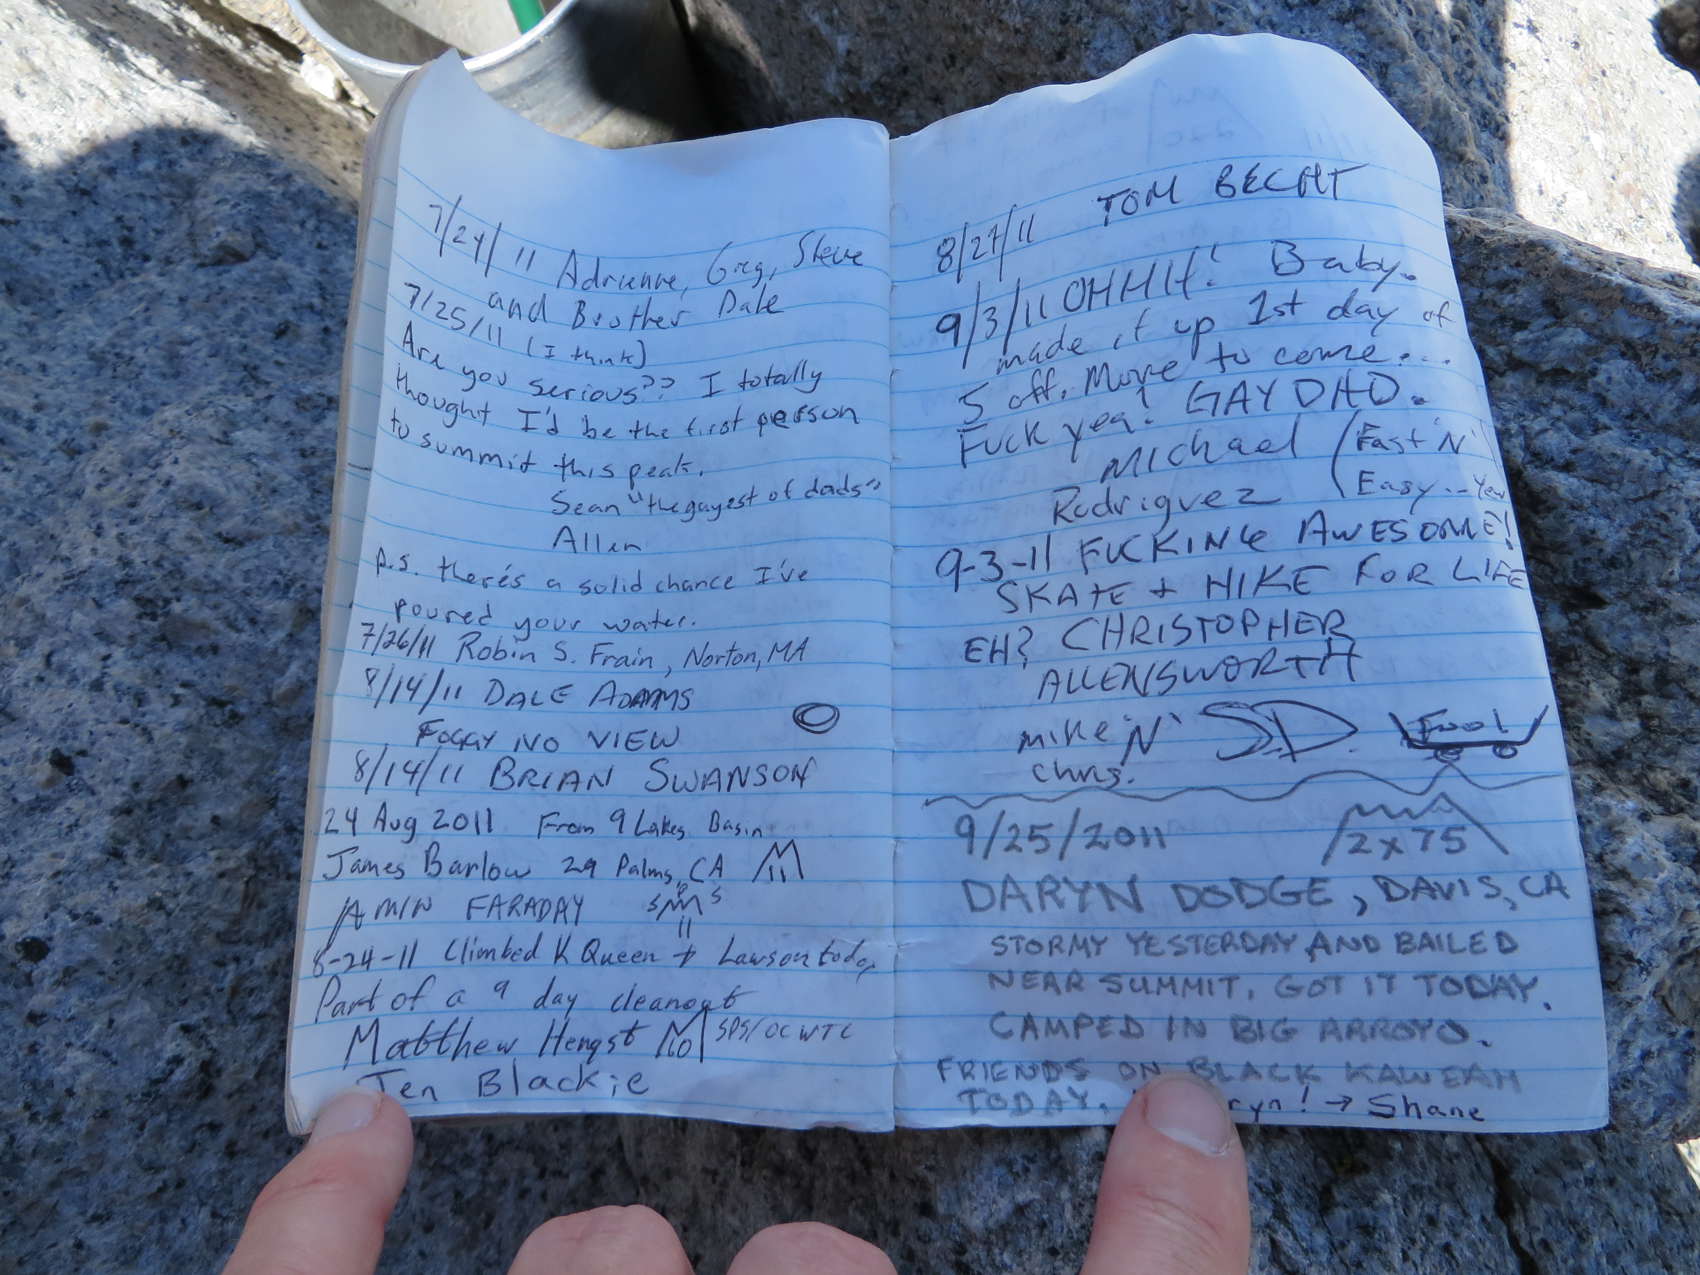 7/24/11 Adrienne, Greg, Steve
and Brother Dale
7/25/11 (I think)
Are you serious?? I totally
thought I'd be the first person
to summit this peak.
Sean "the gayest of dads"
Allen
p.s. there's a solid chance I've
poured your water.
7/26/11 Robin S. Frain, Norton, MA
8/14/11 DALE ADAMS
FOGGY NO VIEW
8/14/11 BRIAN SWANSON
24 Aug 2011 From 9 Lakes Basin
James Barlow 29 Palms, CA
AMIN FARADAY SPS
8-24-11 Climbed K Queen + Lawson today
Part of a 9 day cleanout
Matthew Hengst SPS/OC WTC
Jen Blackie
8/27/11 TOM BECHT
9/3/11 OHHH! Baby.
made it up 1st day of
5 off. More to come....
Fuck yea! GAYDHD.
Michael (Fast 'N'
Rodriguez Easy...
9-3-11 FUCKING AWESOME!
SKATE + HIKE FOR LIFE
EH? CHRISTOPHER
ALLENSWORTH
Mike 'N' SD
Chris.
9/25/2011 12x75
DARYN DODGE, DAVIS, CA
STORMY YESTERDAY AND BAILED
NEAR SUMMIT. GOT IT TODAY.
CAMPED IN BIG ARROYO.
FRIENDS ON BLACK KAWEAH
TODAY. ryn! → Shane